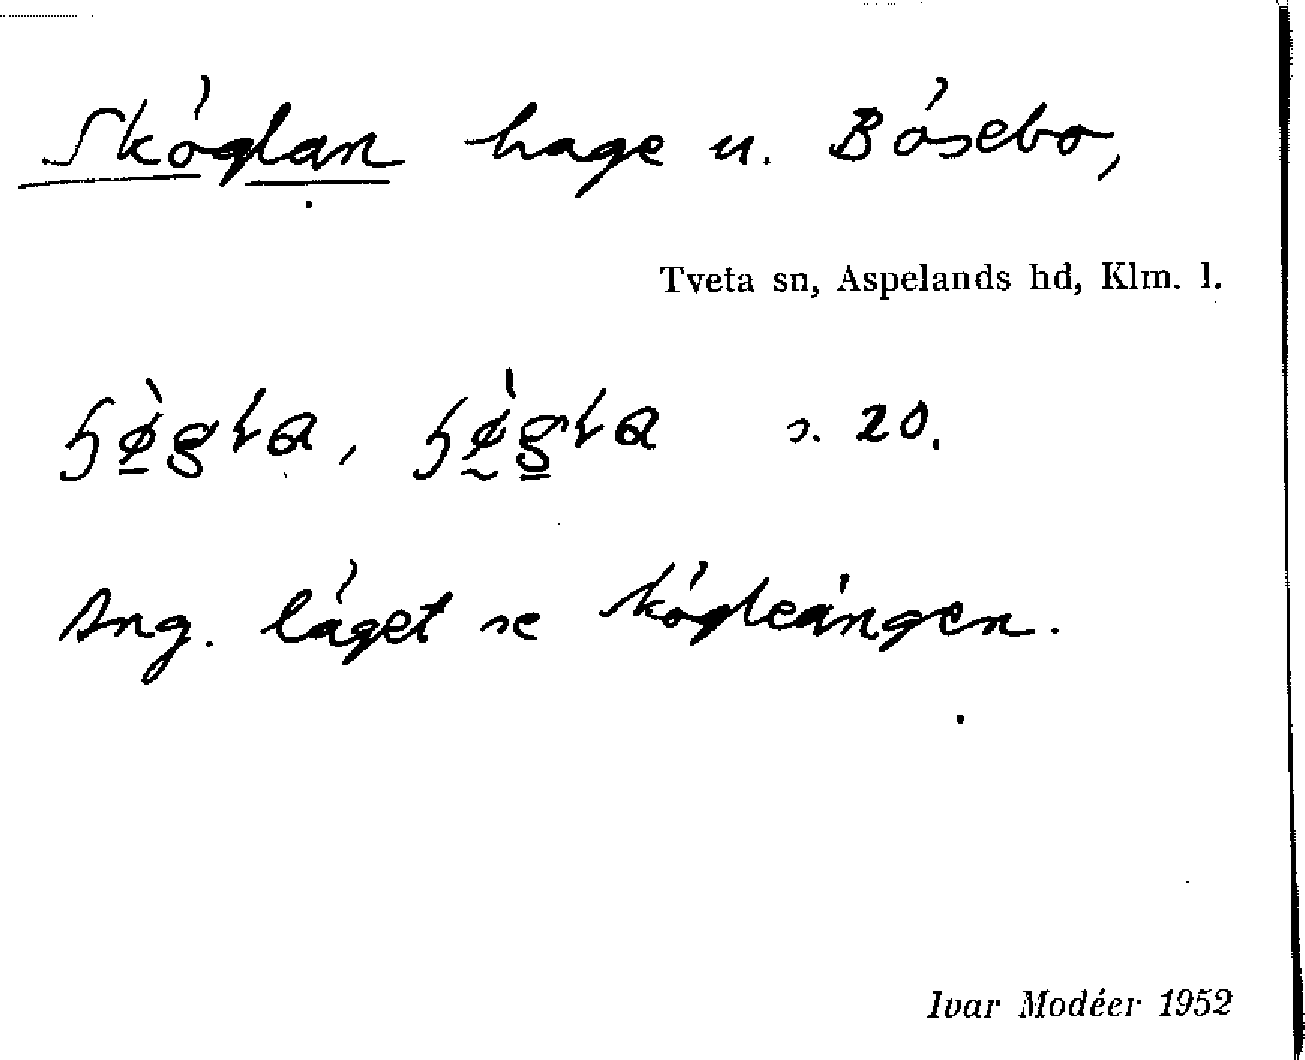 Sköglan hage u. Bösebo,
Tveta sn, Aspelands hd, Klm. l.
s. 20.
Ang. läget se Kögleängen.
Ivar Modéer 1952